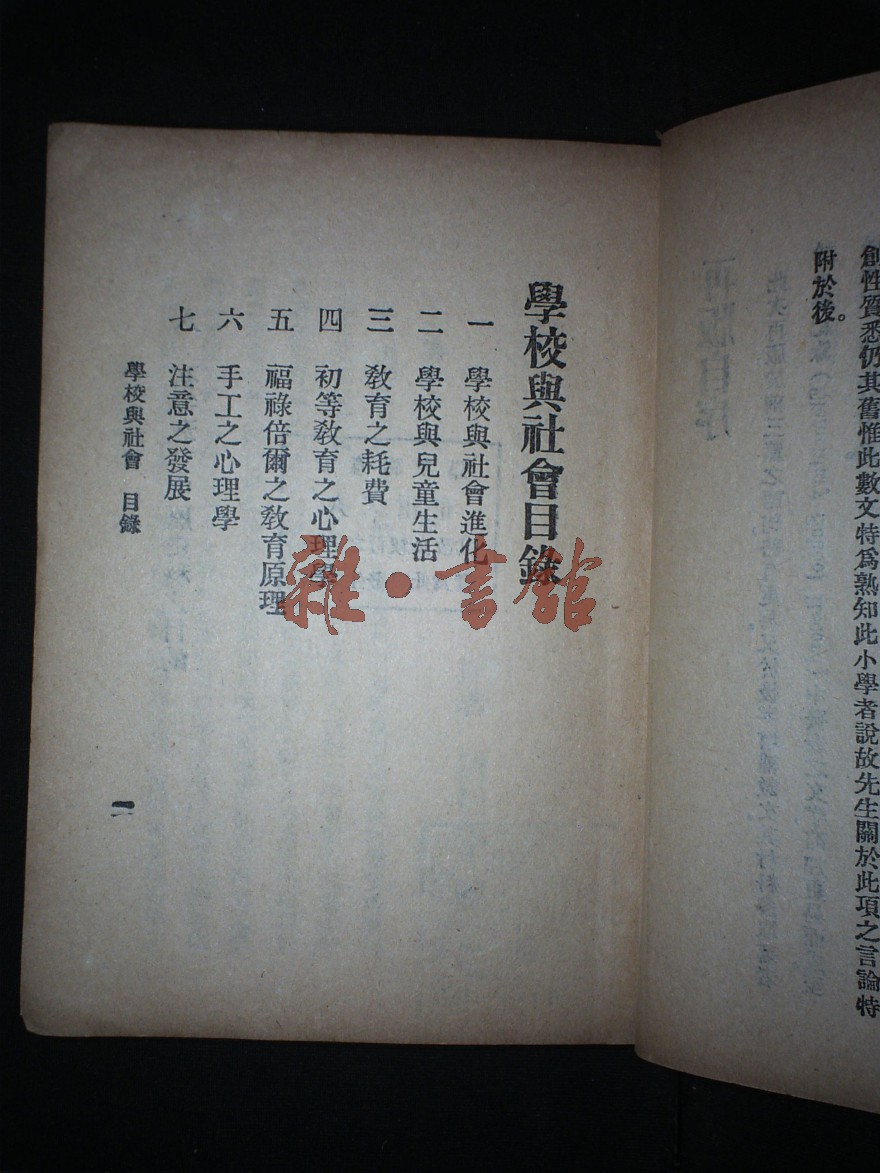 創性質悉仍其舊惟此數文特爲熟知此小學者說故先生關於此項之言論特
附於後。
學校與社會目錄
一 學校與社會進化
二 學校與兒童生活
三 教育之耗費
四 初等教育之心理學
五 福祿倍爾之教育原理
六 手工之心理學
七 注意之發展
學校與社會 目錄
一
雜·書館